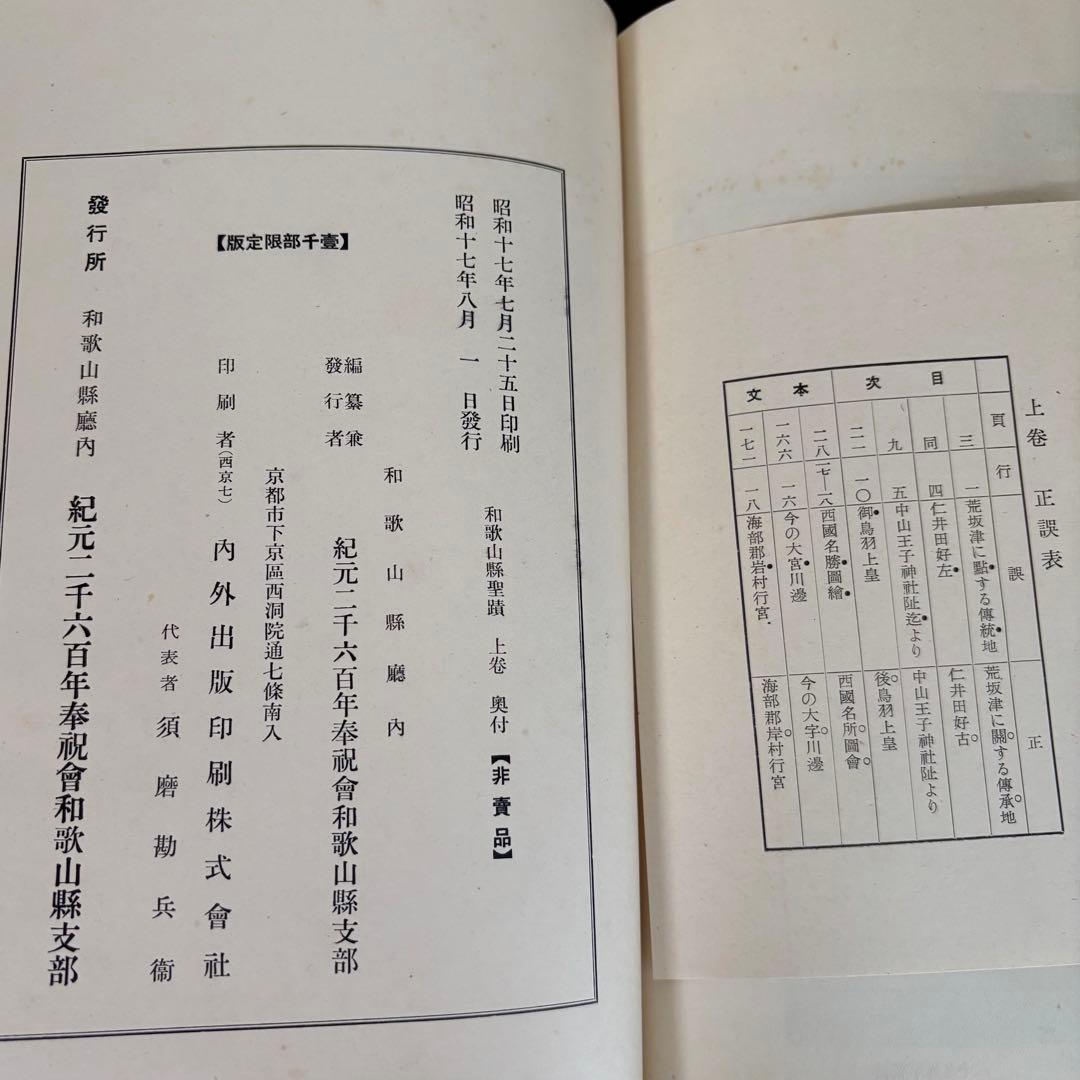 上卷 正誤表
頁 行 誤 正
目次
三 一 荒坂津に點する傳統地 荒坂津に關する傳承地
同 四 仁井田好左 仁井田好古
九 五 中山王子神社阯迄より 中山王子神社阯より
二二 一〇 御鳥羽上皇 後鳥羽上皇
本文
二八 一七―一八 西國名勝圖繪 西國名所圖會
一六六 一六 今の大宮川邊 今の大字川邊
一七一 一八 海部郡岩村行宮 海部郡岸村行宮
昭和十七年七月二十五日印刷
昭和十七年八月 一 日發行
和歌山縣聖蹟 上卷 奧付 【非賣品】
和歌山縣廳內
編纂兼
發行者 紀元二千六百年奉祝會和歌山縣支部
【壹千部限定版】
京都市下京區西洞院通七條南入
印刷者(西京七) 內外出版印刷株式會社
代表者 須磨勘兵衞
發行所 和歌山縣廳內 紀元二千六百年奉祝會和歌山縣支部